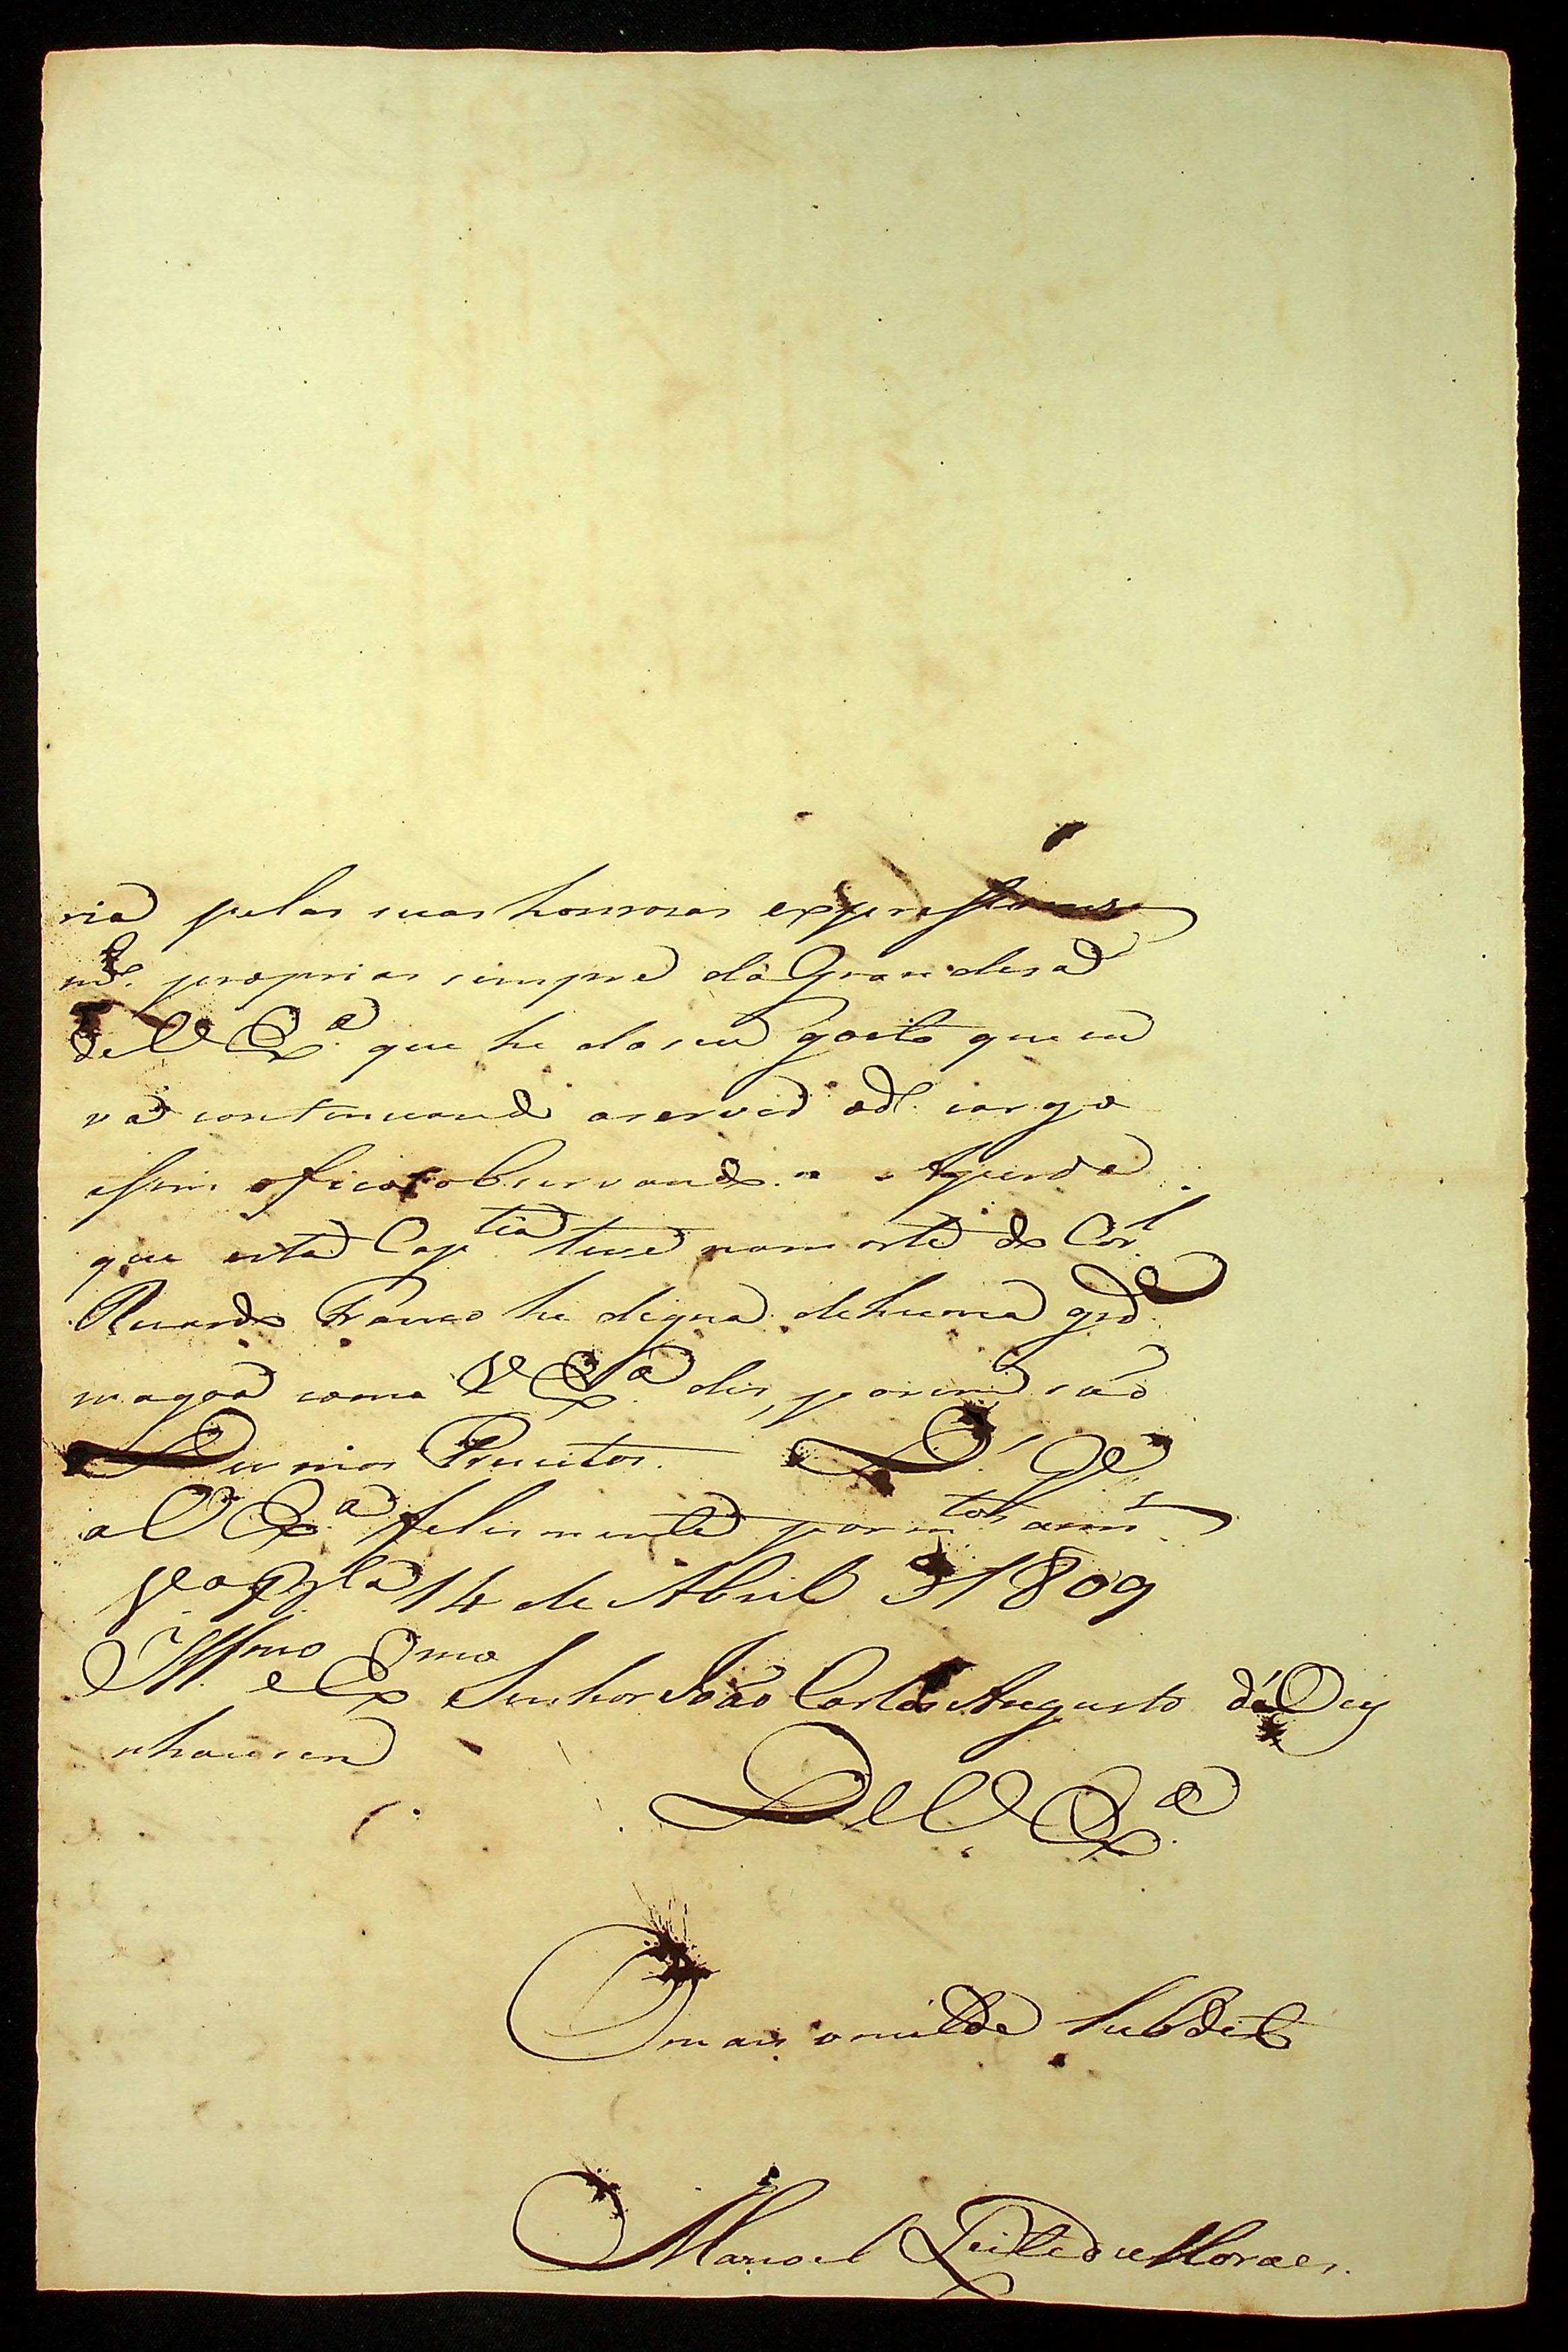 ria pelas suas honrosas expresoens
m.s proprias sempre da Grandesa
de V Ex.a que he do seu gosto que eu
va continuando a servir od.o cargo
assim ofico observando. A perda
que esta Cap.tia teve na morte do Cor.l
Ricardo Franco he digna de huma grd.e
magoa como V Ex.a dis, porem são
Divinos Preceitos. D.s G.e
a V Ex.a felismente por m.tos ann.s
14 de Abril d 1809
Ill.mo e Ex.mo Senhor João Carlos Augusto dé Oey
nhausen
De V Ex.a
O mais omilde Subdito
Manoel Leite de Moraes.